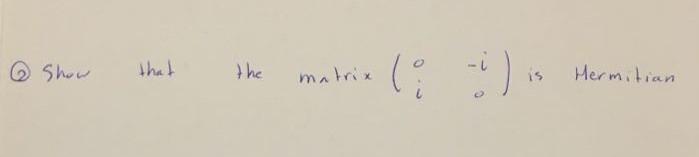 ② Show that the matrix ( 0 -i ; i 0 ) is Hermitian